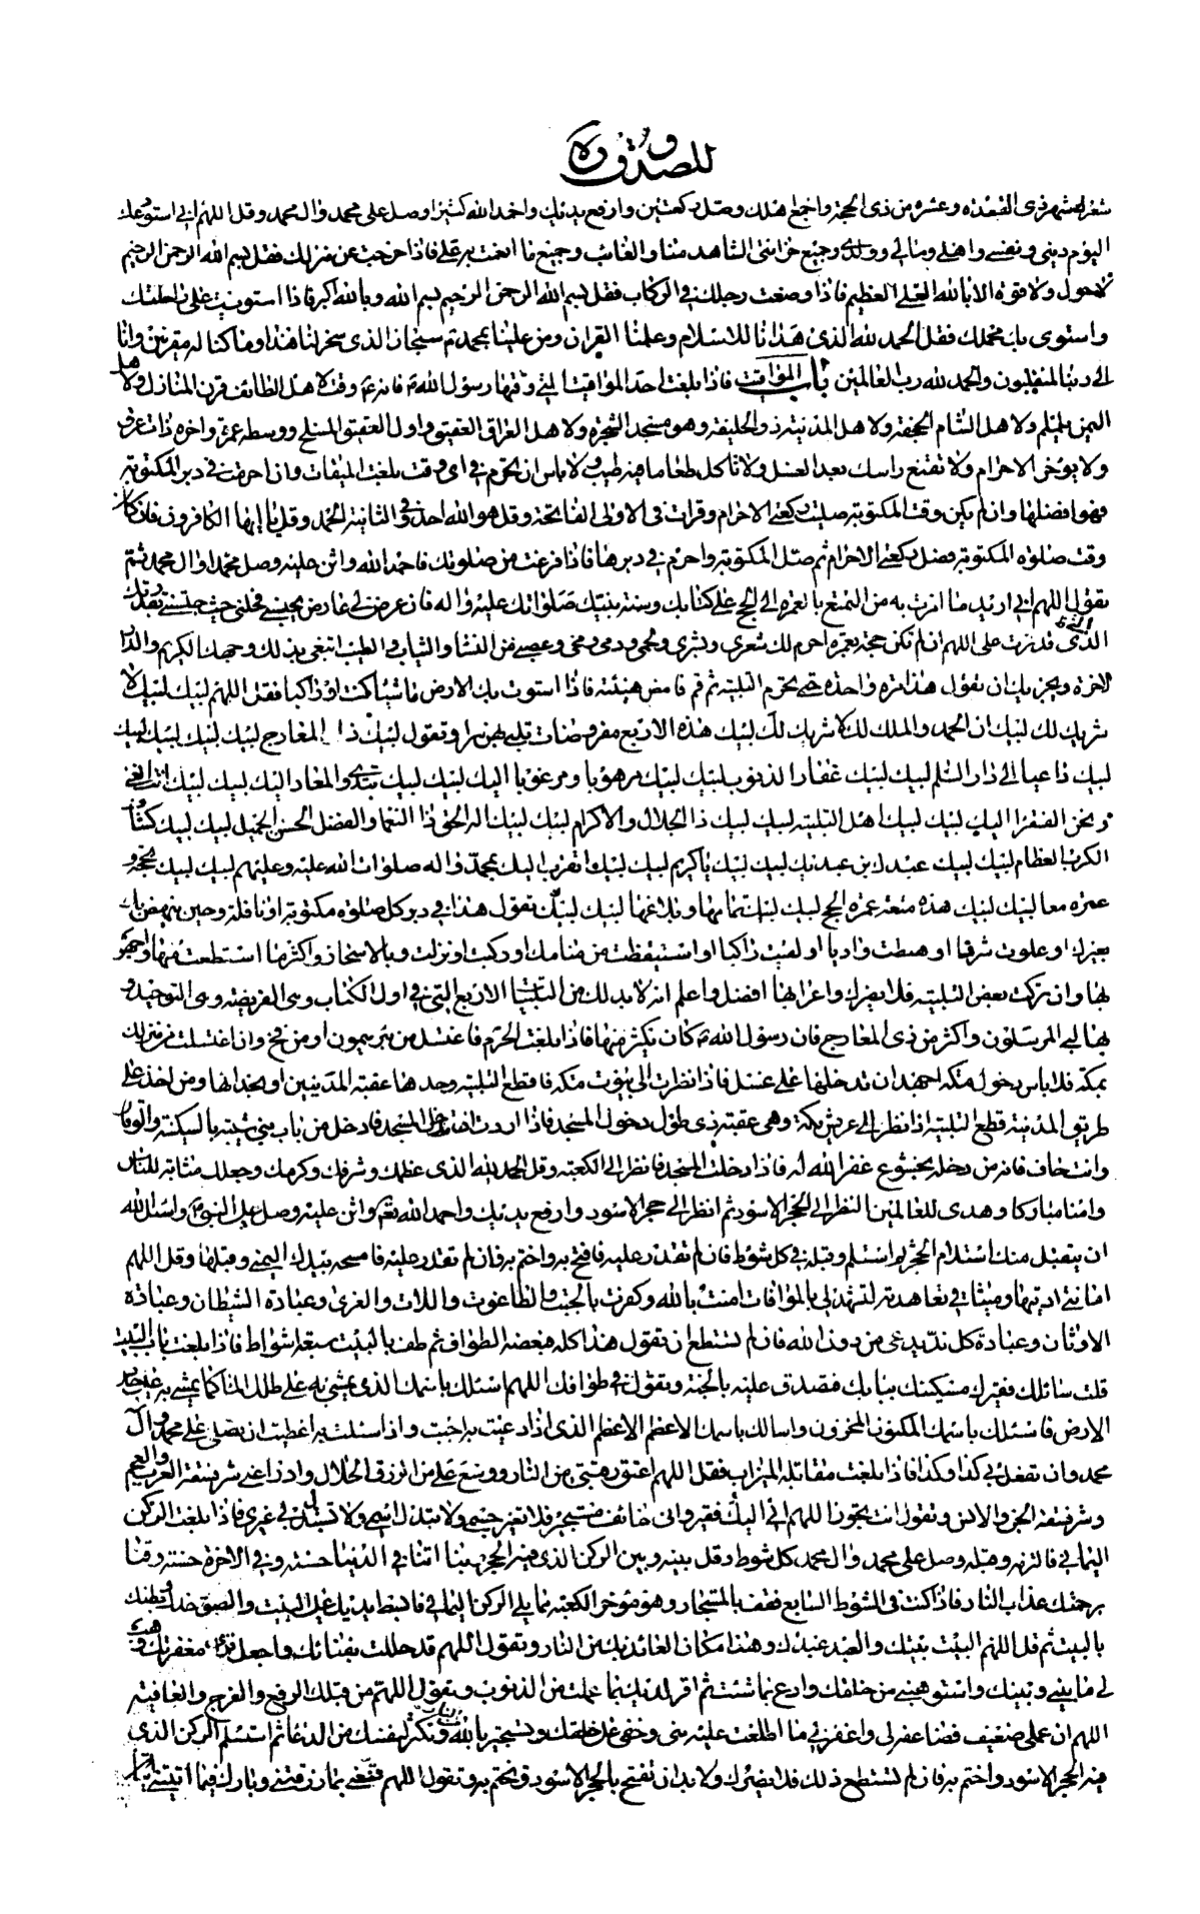 للصدوق ره
شعرك شهر ذى القعده وعشره من ذى الحجة واجمع اهلك وصل ركعتين وارفع يديك واحمد الله كثيرا وصل على محمد وال محمد وقل اللهم انى استودعك
اليوم دينى ونفسى واهلى ومالى وولدى وجميع حزانتى الشاهد منا والغائب وجميع ما انعمت به على فاذا خرجت من منزلك فقل بسم الله الرحمن الرحيم
لا حول ولا قوة الا بالله العلى العظيم فاذا وضعت رجلك فى الركاب فقل بسم الله الرحمن الرحيم بسم الله وبالله والله اكبر فاذا استويت على راحلتك
واستوى بك محملك فقل الحمد لله الذى هدانا للاسلام وعلمنا القران ومن علينا بمحمد ص سبحان الذى سخر لنا هذا وما كنا له مقرنين وانا
الى ربنا لمنقلبون والحمد لله رب العالمين باب المواقيت فاذا بلغت احد المواقيت التى وقتها رسول الله ص فانه ع وقت لاهل الطائف قرن المنازل ولاهل
اليمن يلملم ولاهل الشام الجحفة ولاهل المدينة ذو الحليفة وهو مسجد الشجرة ولاهل العراق العقيق واول العقيق المسلخ ووسطه غمرة واخره ذات عرق
ولا يؤخر الاحرام ولا تقنع راسك بعد الغسل ولا تاكل طعاما فيه طيب ولا باس ان تحرم فى اى وقت بلغت الميقات وان احرمت فى دبر المكتوبة
فهو افضلها وان لم يكن وقت المكتوبة صليت ركعتى الاحرام وقرات فى الاولى الفاتحة وقل هو الله احد وفى الثانية الحمد وقل يا ايها الكافرون فان كان
وقت صلوة المكتوبة فصل ركعتى الاحرام ثم صل المكتوبة واحرم فى دبرها فاذا فرغت من صلوتك فاحمد الله واثن عليه وصل على محمد وال محمد ثم
تقول اللهم انى اريد ما امرت به من التمتع بالعمرة الى الحج على كتابك وسنة نبيك صلواتك عليه واله فان عرض لى عارض يحبسنى فحلنى حيث حبستنى بقدرتك
الذى قدرت على اللهم ان لم تكن حجة فعمرة احرم لك شعرى وبشرى ولحمى ودمى ومخى وعصبى من النساء والثياب والطيب ابتغى بذلك وجهك الكريم والدار
الاخرة ويجزيك ان تقول هذا مرة واحدة حين تحرم التلبية ثم قم فامض هنيئة فاذا استوت بك الارض ماشيا كنت او راكبا فقل اللهم لبيك لبيك لا
شريك لك لبيك ان الحمد والملك لك لا شريك لك لبيك هذه الاربع مفروضات تلبى بهن سرا وتقول لبيك ذا المعارج لبيك لبيك لبيك لبيك
لبيك داعيا الى دار السلم لبيك لبيك غفار الذنوب لبيك لبيك مرهوبا ومرغوبا اليك لبيك لبيك تبدى والمعاد اليك لبيك لبيك انت الغنى
ونحن الفقرا اليك لبيك لبيك اهل التلبية لبيك لبيك ذا الجلال والاكرام لبيك لبيك اله الحق ذا النعما والفضل الحسن الجميل لبيك لبيك كشاف
الكرب العظام لبيك لبيك عبدك ابن عبديك لبيك لبيك يا كريم لبيك لبيك اتقرب اليك بمحمد واله صلوات الله عليه وعليهم لبيك لبيك بحجة و
عمرة معا لبيك لبيك هذه متعة عمرة الحج لبيك لبيك تمامها وبلاغها لبيك لبيك تقول هذا فى دبر كل صلوة مكتوبة او نافلة وحين ينهض بك
بعيرك او علوت شرفا او هبطت واديا او لقيت راكبا او استيقظت من منامك او ركبت او نزلت وبالاسحار واكثر ما استطعت منها واجهر
بها وان تركت بعض التلبية فلا يضرك وغيرانها افضل واعلم انه لا بد لك من التلبيات الاربع التى فى اول الكتاب وهى الفريضة وهى التوحيد و
بها لبى المرسلون واكثر من ذى المعارج فان رسول الله ص كان يكثر منها فاذا بلغت الحرم فاغتسل من بئر ميمون او من فخ وان اغتسلت فى منزلك
بمكة فلا باس دخول مكة اجهد ان تدخلها على غسل فاذا نظرت الى بيوت مكة فاقطع التلبية وحدها عقبة المدنيين او بحذائها ومن اخذ على
طريق المدينة قطع التلبية اذا نظر الى عريش مكة وهى عقبة ذى طوى دخول المسجد فاذا اردت ان تدخل المسجد فادخل من باب بنى شيبة بالسكينة والوقار
وانت خاف فانه من دخله بخشوع غفر الله له فاذا دخلت المسجد فانظر الى الكعبة وقل الحمد لله الذى عظمك وشرفك وكرمك وجعلك مثابة للناس
وامنا مباركا وهدى للعالمين النظر الى الحجر الاسود ثم انظر الى حجر الاسود وارفع يديك واحمد الله تع واثن عليه وصل على النبى ص واسئل الله
ان يتقبل منك استلام الحجر ثم استلم وقبله فى كل شوط فان لم تقدر عليه فافتح به واختم به فان لم تقدر عليه فامسحه بيدك اليمنى وقبلها وقل اللهم
امانتى اديتها وميثاقى تعاهدته لتشهد لى بالموافات امنت بالله وكفرت بالجبت والطاغوت واللات والعزى وعبادة الشيطان وعبادة
الاوثان وعبادة كل ند يدعى من دون الله فان لم تستطع ان تقول هذا كله فبعضه الطواف ثم طف بالبيت سبعة اشواط فاذا بلغت باب البيت
قلت سائلك فقيرك مسكينك ببابك فتصدق عليه بالجنة وتقول فى طوافك اللهم اسئلك باسمك الذى يمشى به على طلل الماء كما يمشى به على جدد
الارض فاسئلك باسمك المكنون المخزون واسالك باسمك الاعظم الاعظم الذى اذا دعيت به اجبت واذا سئلت به اعطيت ان تصلى على محمد وال
محمد وان تفعل بى كذا وكذا فاذا بلغت مقابلة الميزاب فقل اللهم اعتق رقبتى من النار ووسع على من الرزق الحلال وادرا عنى شر فسقة العرب والعجم
وشر فسقة الجن والانس وتقول انت تجوز اللهم انى اليك فقير وانى خائف مستجير فلا تغير جسمى ولا تبدل اسمى ولا تستبدل بى غيرى فاذا بلغت الركن
اليمانى فالتزمه وقبله وصل على محمد وال محمد كل شوط وقل بينه وبين الركن الذى فيه الحجر ربنا اتنا فى الدنيا حسنة وفى الاخرة حسنة وقنا
برحمتك عذاب النار فاذا كنت فى الشوط السابع فقف بالمستجار وهو مؤخر الكعبة مما يلى الركن اليمانى فابسط يديك على البيت والصق خدك وبطنك
بالبيت ثم قل اللهم البيت بيتك والعبد عبدك وهذا مكان العائذ بك من النار وتقول اللهم قد حللت بفنائك واجعل قراى مغفرتك وهب
لى ما بينى وبينك واستوهبنى من خلقك وادع بما شئت ثم اقر لربك بما عملت من الذنوب وتقول اللهم من قبلك الروح والفرج والعافية
اللهم ان عملى ضعيف فضاعفه لى واغفر لى ما اطلعت عليه منى وخفى على خلقك وتستجير بالله من النار وتكثر لنفسك من الدعاء ثم استلم الركن الذى
فيه الحجر الاسود واختم به فان لم تستطع ذلك فلا يضرك ولا بد ان تفتح بالحجر الاسود وتختم به وتقول اللهم قنعنى بما رزقتنى وبارك فيما اتيتنى